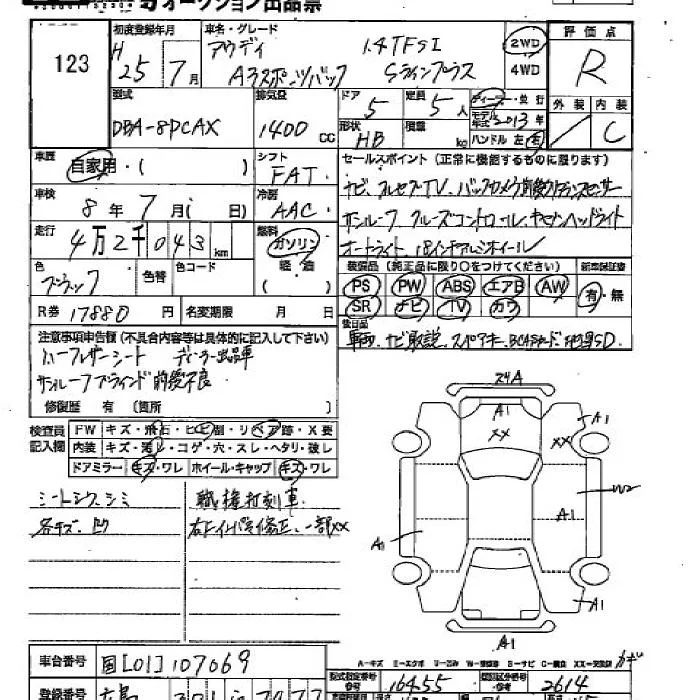 オークション出品票
123
初度登録年月
H 25年 7月
車名・グレード
アウディ 1.4TFSI
A3スポーツバック Sラインプラス
2WD
4WD
評価点
R
外装 内装
C
型式
DBA-8PCAX
排気量
1400cc
ドア
5
定員
5人
形状
HB
積載
kg
ディーラー・並行
モデル年式 2013年
ハンドル 左・右
車歴
自家用・( )
シフト
FAT
セールスポイント(正常に機能するものに限ります)
ナビ、フルセグTV、バックカメラ、前後
サンルーフ クルーズコントロール、キセノンヘッドライト
オートライト、18インチアルミホイール
車検
8年 7月( 日)
冷房
AAC
走行
4万2千043km
燃料
ガソリン
軽・油
( )
色
ブラック
色替
色コード
装備品(純正品に限り○をつけてください)
PS PW ABS エアB AW
SR ナビ TV カワ
新車保証書
有・無
R券 17880円
名変期限 月 日
後日品
ナビ取説、スペアキー、BCASカード、地図SD、
注意事項申告欄(不具合内容等は具体的に記入して下さい)
ハーフレザーシート ディーラー出品車
サンルーフブラインド前後不良
修復歴 有(箇所 )
検査員記入欄
FW キズ・飛石・ヒビ・割・リペア跡・X要
内装 キズ・汚レ・コゲ・穴・スレ・ヘタリ・破レ
ドアミラー キズ・ワレ ホイール・キャップ キズ・ワレ
シートシワ、シミ
各キズ、凹
職権打刻車、
右Fインパネ修正、一部XX
24A
A1
XX
A1
XX
W2
A1
A1
A1
A1
A-キズ E-エクボ U-凹み W-補修跡 S-サビ C-腐食 XX-交換済
車台番号
国[01]107069
型式指定番号
16455
類別区分番号
2614
登録番号
広島 301